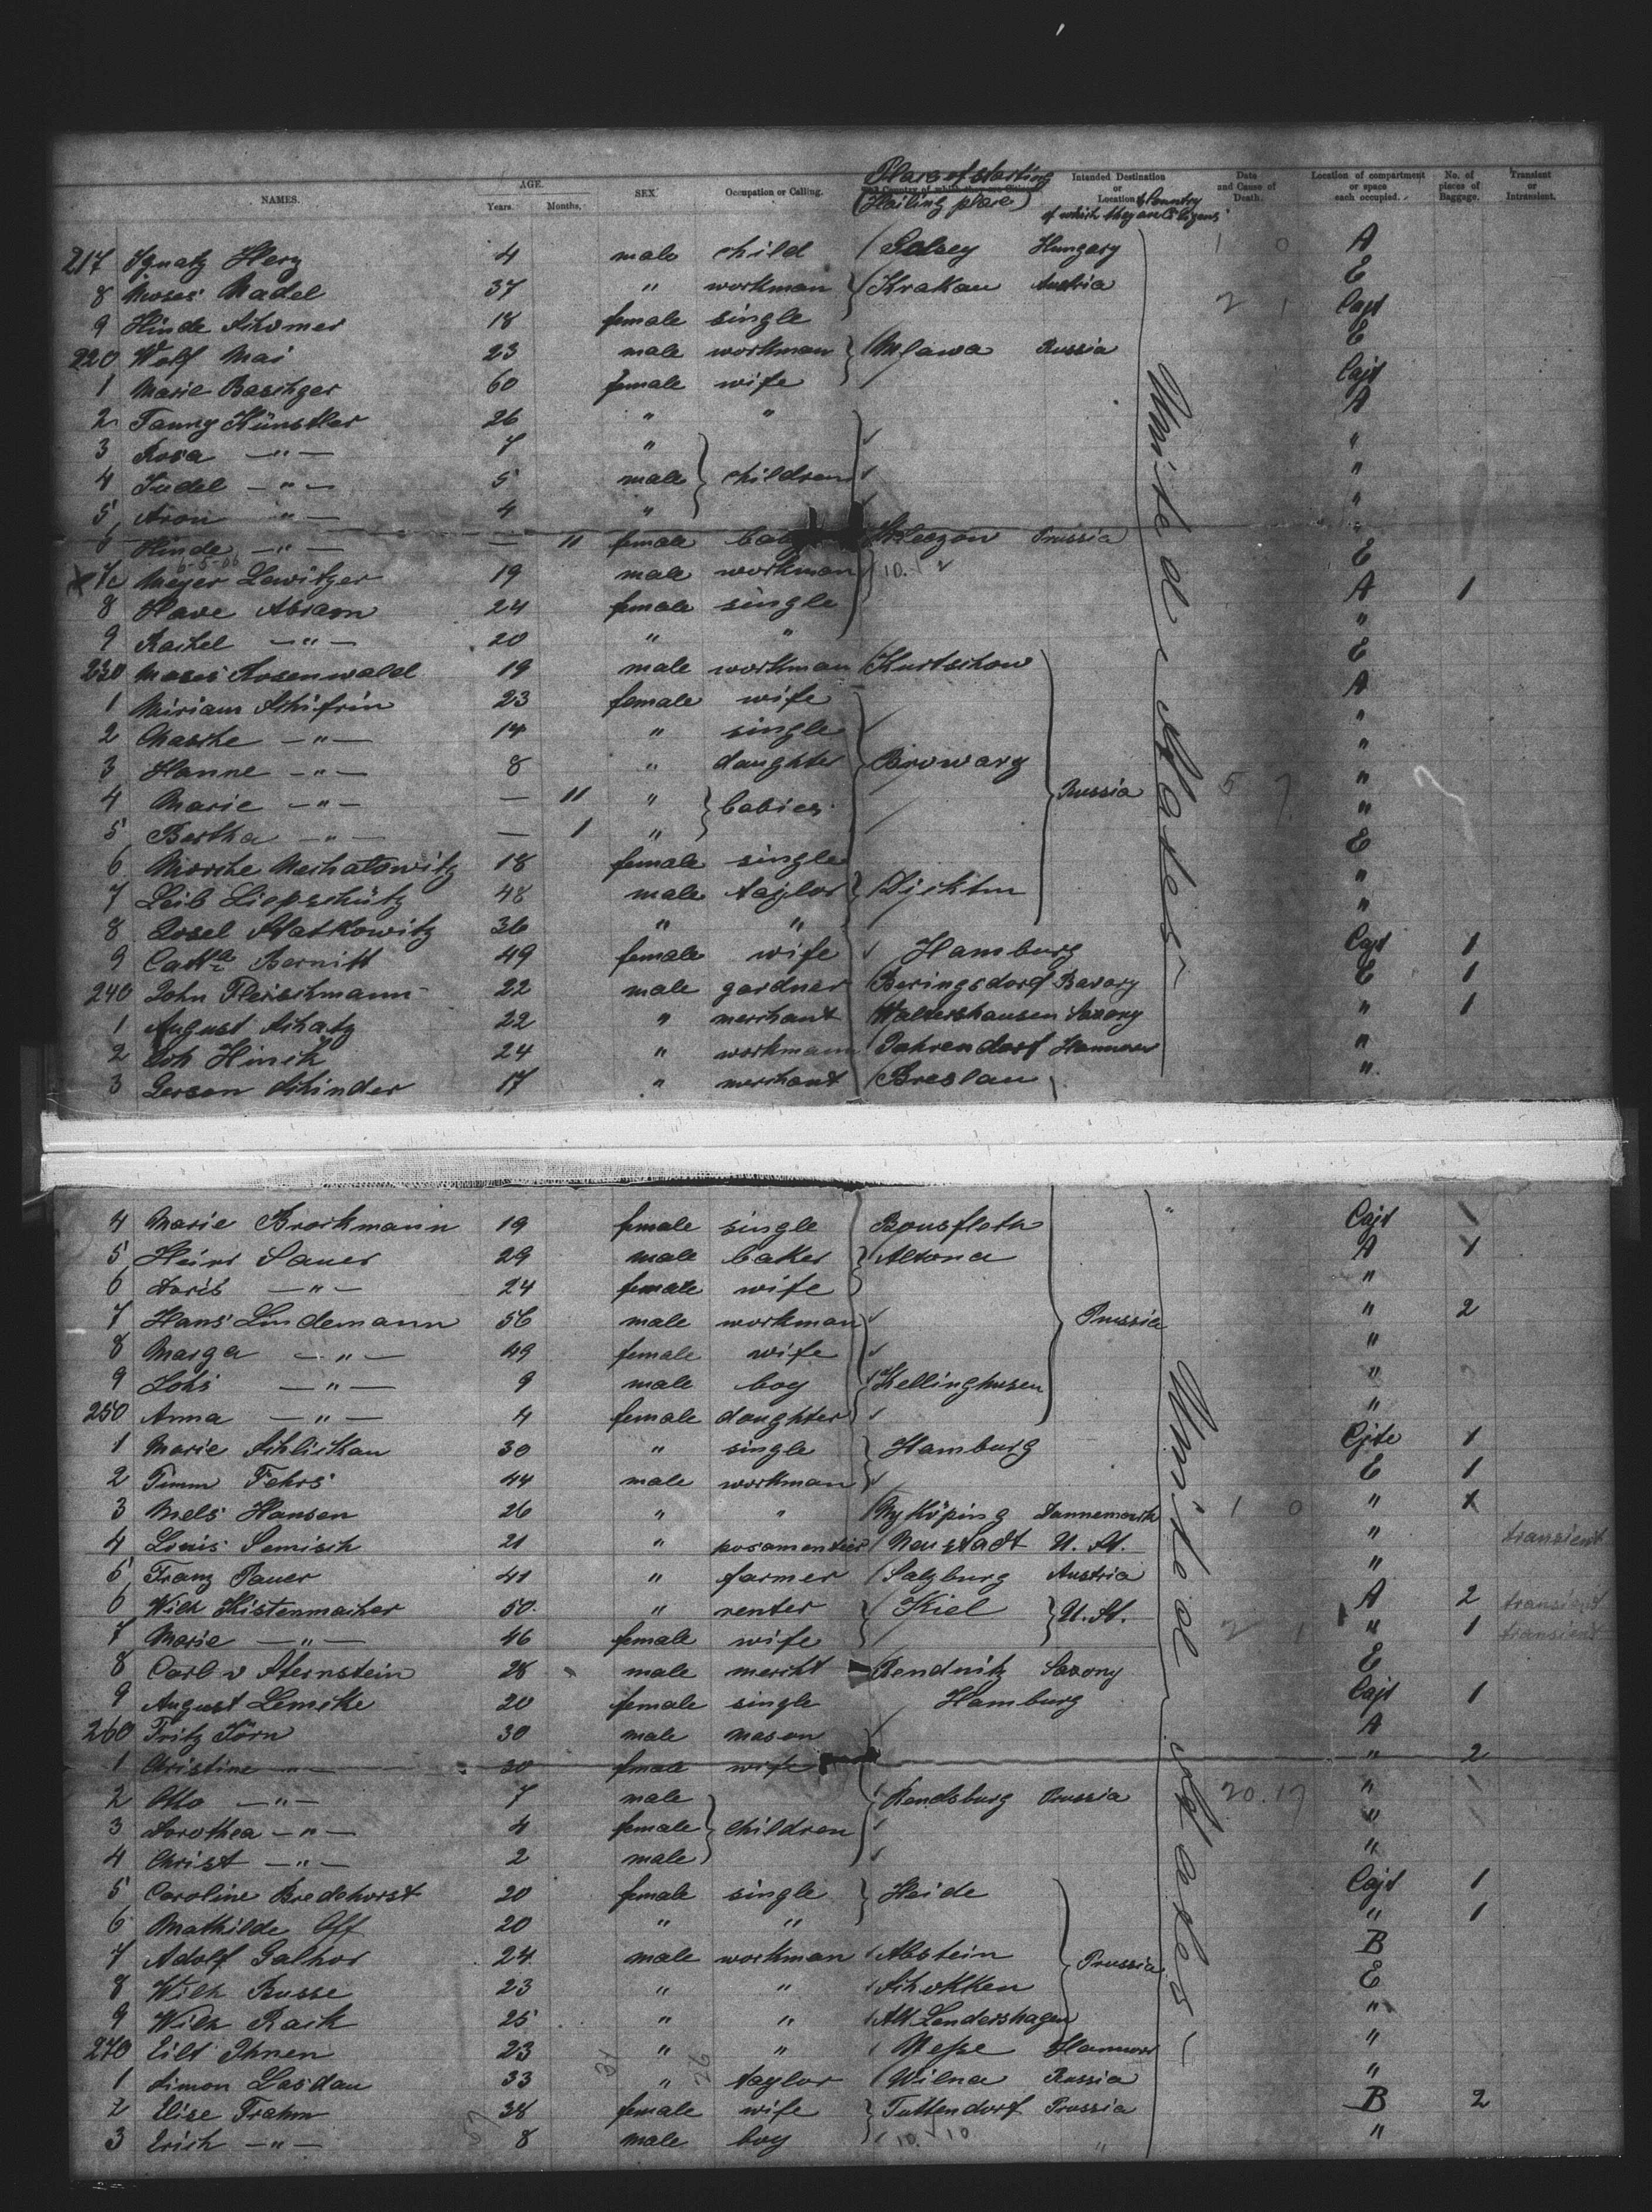 NAMES. AGE. Years. Months. SEX. Occupation or Calling. Place of starting (Hailing place) Intended Destination or Location & Country of which they are Citizens Date and Cause of Death. Location of compartment or space each occupied. No. of pieces of Baggage. Transient or Intransient.
217 Ignatz Herz 4 male child Hungary 1 0 A
8 Moses Nadel 37 " workman Krakau Austria E
9 Hinde 18 female single 2 1 Cajt
220 Wolf Mai 23 male workman Mlawa Russia E
1 Marie 60 female wife Cajt
2 Fanny Künstler 26 " " A
3 Rosa —"— 7 " "
4 Judel —"— 5 male children "
5 Aron —"— 4 " "
6 Hinde —"— — 11 female baby Prussia
7 Meyer Lewitzer 19 male workman E
8 Have Abram 24 female single A 1
9 Rachel —"— 20 " " "
230 Moses Rosenwald 19 male workman Kurtschow E
1 Miriam Schifrin 23 female wife A
2 Masche —"— 14 " single "
3 Hanne —"— 8 " daughter Browary "
4 Marie —"— — 11 " babies Russia 5 7 "
5 Bertha —"— — 1 " "
6 18 female single E
7 Leib Liepschütz 48 male taylor "
8 Josel 36 " " "
9 Bernitt 49 female wife Hamburg Cajt 1
240 John Fleischmann 22 male gardner Beringsdorf Bavary E 1
1 August Schatz 22 " merchant Waltershausen Saxony " 1
2 Joh Hinck 24 " workmann Dahrendorf Hannover "
3 Gerson Schinder 17 " merchant Breslau "
United States
4 Marie Brockmann 19 female single Cajt
5 Heinr Sauer 29 male baker Altona A 1
6 Doris —"— 24 female wife "
7 Hans Lindemann 56 male workman Prussia " 2
8 Marga —"— 49 female wife "
9 —"— 9 male boy Kellinghusen "
250 Anna —"— 4 female daughter "
1 Marie Schlichau 30 " single Hamburg Cjte 1
2 Timm Fehrs 44 male workman E 1
3 Niels Hansen 26 " " Nykiöping Dannemark 1 0 "
4 Louis Semisch 21 " posamentier Neustadt U. St. " transient
5 Franz Pauer 41 " farmer Salzburg Austria "
6 Wilh Kistenmacher 50 " renter Kiel U. St. A 2 transient
7 Marie —"— 46 female wife 2 1 " 1 transient
8 Carl v Sternstein 28 male mercht Rendnitz Saxony E
9 August Lemcke 20 female single Hamburg Cajt 1
260 Fritz Jörn 30 male mason A
1 Christine —"— 30 female wife " 2
2 Otto —"— 7 male Rendsburg Prussia 20. 17 "
3 Dorothea —"— 4 female children "
4 Christ —"— 2 male "
5 Caroline Bredehorst 20 female single Heide Cajt 1
6 Mathilde Off 20 " " " 1
7 Adolf Galhor 24 male workman Abstein Prussia B
8 Wilh Busse 23 " " Schokken E
9 Wilh Rack 25 " " "
270 Eilt Ihnen 23 " " Nesse Hannover "
1 Simon Lasdau 33 " taylor Wilna Russia "
2 Elise Frahm 38 female wife Tuttendorf Prussia B 2
3 Erich —"— 8 male boy " "
United States